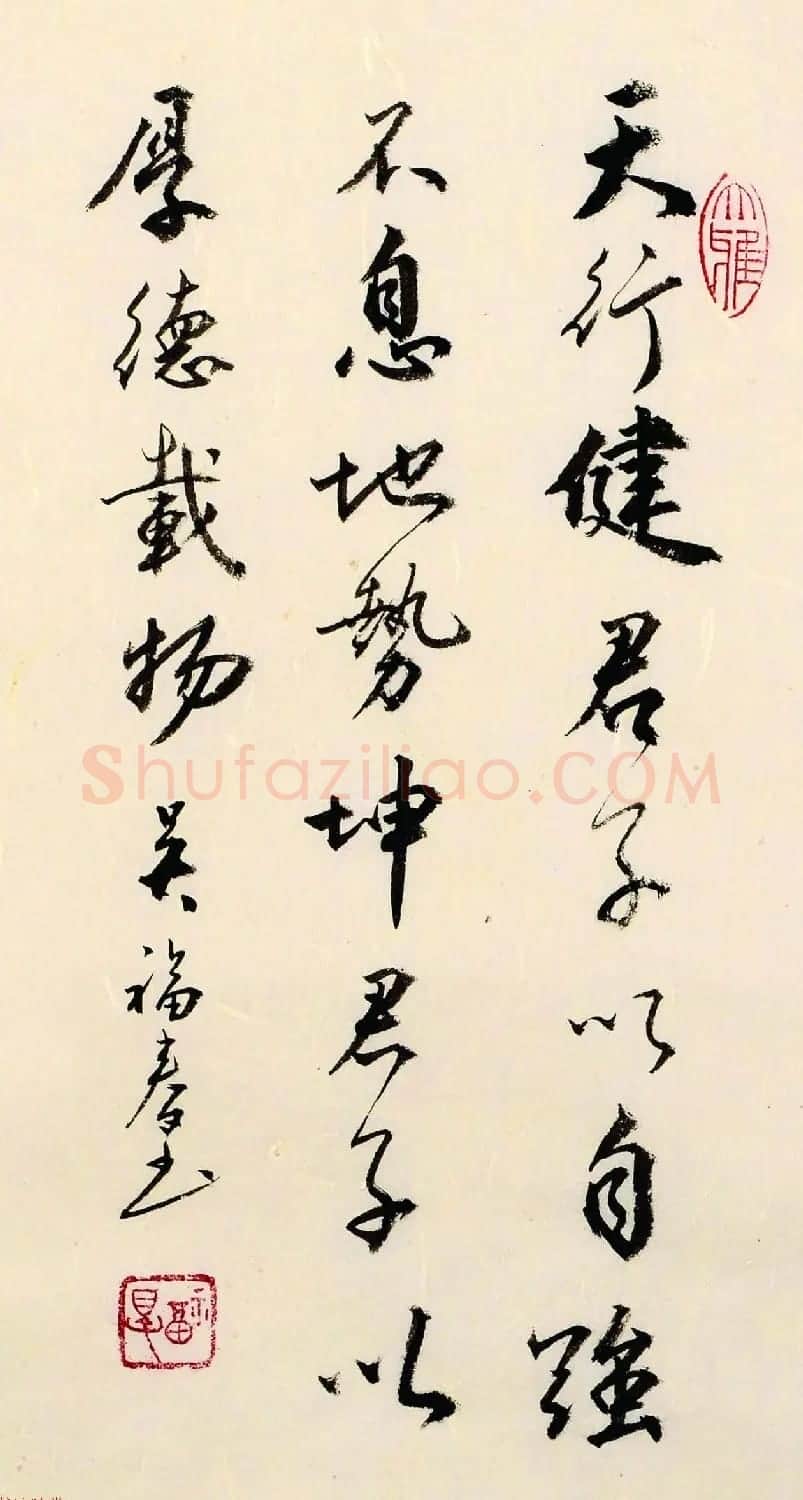 天行健君子以自強
不息地勢坤君子以
厚德載物 吴福春书
大雅
Shufaziliao.COM